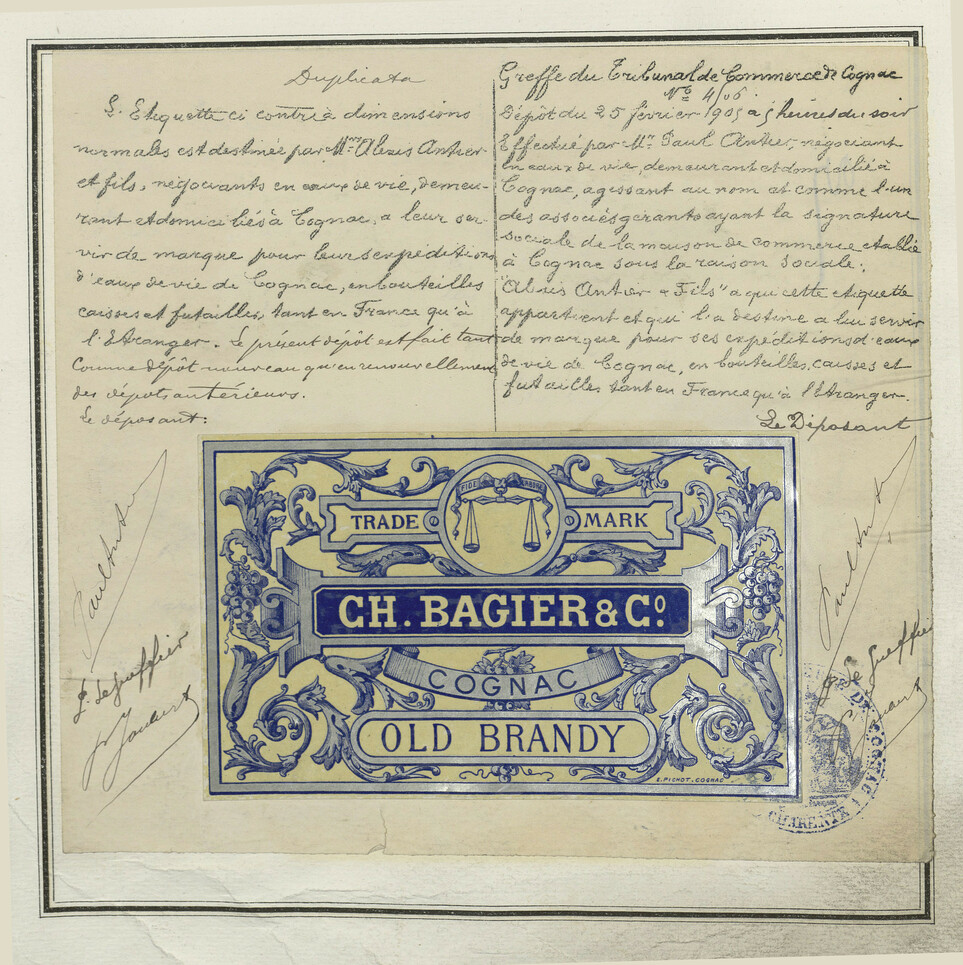 Duplicata
L'Etiquette ci contre à dimensions
normales est destinée par Mrs Alexis Antier
et fils, négociants en eaux de vie, demeu-
rant et domiciliés à Cognac, a leur ser-
vir de marque pour leurs expéditions
d'eaux de vie de Cognac, en bouteilles
caisses et futailles, tant en France qu'à
l'Etranger. Le présent dépôt est fait tant
comme dépôt nouveau qu'en renouvellement
des dépots antérieurs.
Le déposant:
Greffe du Tribunal de Commerce de Cognac
No
Dépôt du 25 février 1905 à 5 heures du soir
Effectué par Mr Paul Antier, négociant
en eaux de vie, demeurant et domicilié à
Cognac, agissant au nom et comme l'un
des associés gerants ayant la signature
sociale de la maison de commerce etablie
à Cognac sous la raison sociale:
"Alexis Antier & Fils" a qui cette etiquette
appartient et qui l'a destine a lui servir
de marque pour ses expeditions d'eaux
de vie de Cognac, en bouteilles, caisses et
futailles tant en France qu'à l'étranger.
Le Déposant
FIDE LABORE
TRADE MARK
CH. BAGIER & Co.
COGNAC
OLD BRANDY
E. PICHOT. COGNAC
Paul Antier
Paul Antier
COGNAC
CHARENTE